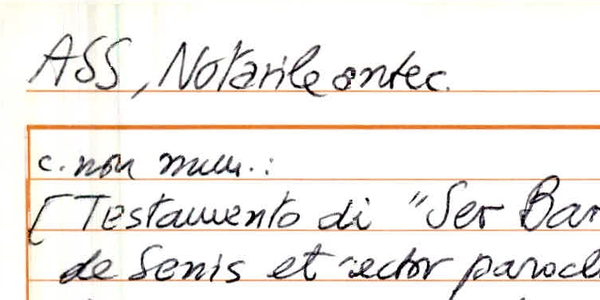 ASS, Notarile antec.
c. non num.:
[Testamento di "Ser Bar
de Senis et rector paroch